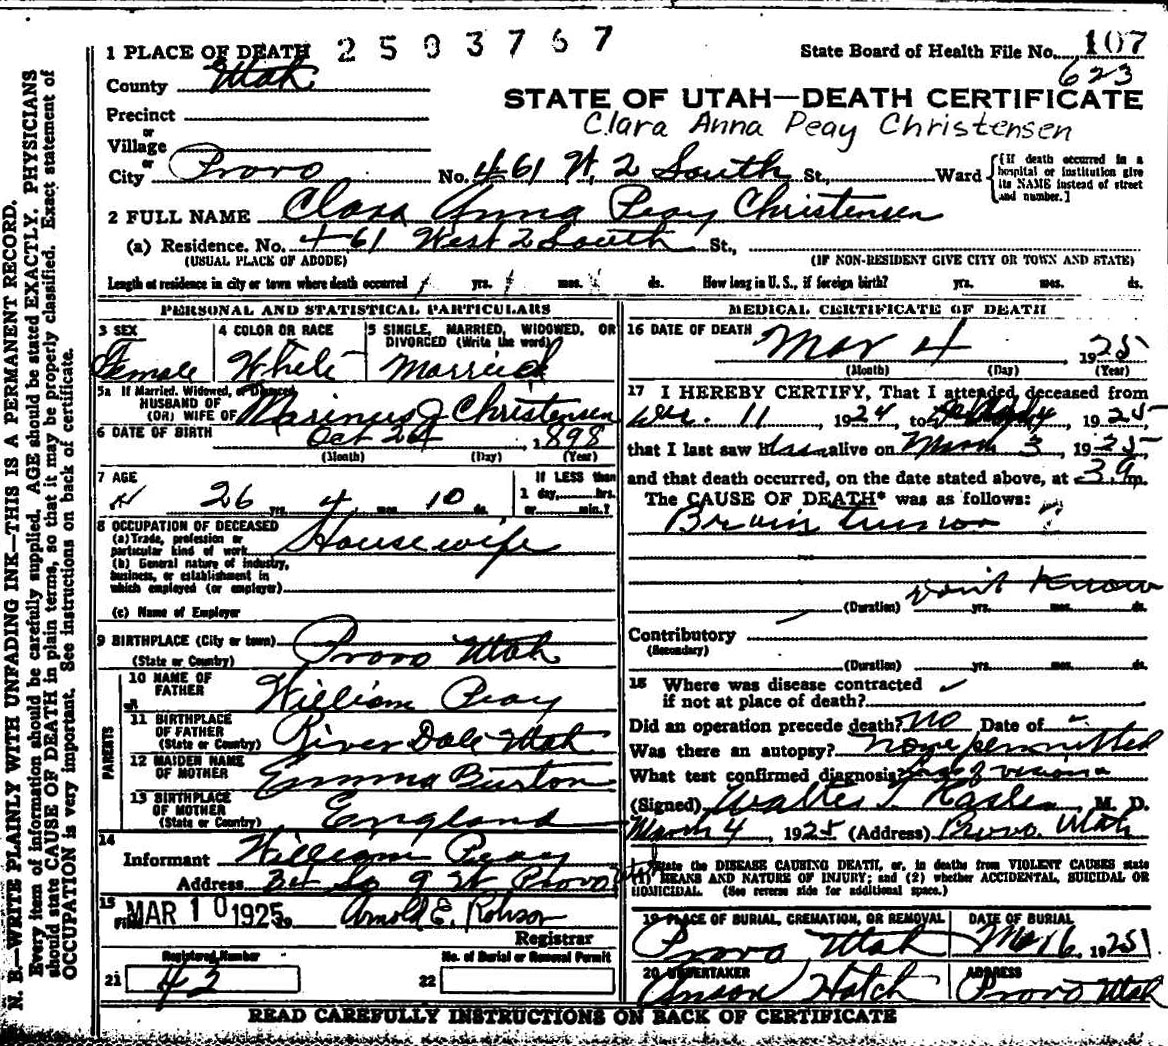 1 PLACE OF DEATH 2503767 State Board of Health File No. 107
County Utah 623
STATE OF UTAH—DEATH CERTIFICATE
Precinct
or
Village
Clara Anna Peay Christensen
or
City Provo No. 461 W. 2 South St., Ward {[If death occurred in a hospital or institution give its NAME instead of street and number.]
2 FULL NAME Clara Anna Peay Christensen
(a) Residence. No. 461 West 2 South St.,
(USUAL PLACE OF ABODE) (IF NON-RESIDENT GIVE CITY OR TOWN AND STATE)
Length of residence in city or town where death occurred yrs. mos. ds. How long in U. S., if foreign birth? yrs. mos. ds.
PERSONAL AND STATISTICAL PARTICULARS
3 SEX
Female
4 COLOR OR RACE
White
5 SINGLE, MARRIED, WIDOWED, OR DIVORCED (Write the word)
Married
5a If Married, Widowed, or Divorced
HUSBAND OF
(OR) WIFE OF Marinus J Christensen
6 DATE OF BIRTH Oct 24 1898
(Month) (Day) (Year)
7 AGE
26 yrs. 4 mos. 10 ds.
If LESS than
1 day, hrs.
or min.?
8 OCCUPATION OF DECEASED
(a) Trade, profession or
particular kind of work Housewife
(b) General nature of industry,
business, or establishment in
which employed (or employer)
(c) Name of Employer
9 BIRTHPLACE (City or town) Provo Utah
(State or Country)
PARENTS
10 NAME OF
FATHER William Peay
11 BIRTHPLACE
OF FATHER River Dale Utah
(State or Country)
12 MAIDEN NAME
OF MOTHER Emma Burton
13 BIRTHPLACE
OF MOTHER England
(State or Country)
14
Informant William Peay
Address 3et So 9 W Provo Utah
15
Filed MAR 10 1925 Arnold E. Robison
Registrar
Registered Number
21 43
No. of Burial or Removal Permit
22
MEDICAL CERTIFICATE OF DEATH
16 DATE OF DEATH
Mar 4 1925
(Month) (Day) (Year)
17 I HEREBY CERTIFY, That I attended deceased from
Dec. 11 1924 to 1925
that I last saw h alive on March 3 1925
and that death occurred, on the date stated above, at 3 m.
The CAUSE OF DEATH* was as follows:
Brain tumor
don't know
(Duration) yrs. mos. ds.
Contributory
(Secondary)
(Duration) yrs. mos. ds.
18 Where was disease contracted
if not at place of death?
Did an operation precede death? No Date of
Was there an autopsy? none permitted
What test confirmed diagnosis? Loss of vision
(Signed) Walter T. M. D.
March 4, 1925 (Address) Provo Utah
*State the DISEASE CAUSING DEATH, or, in deaths from VIOLENT CAUSES state
(1) MEANS AND NATURE OF INJURY; and (2) whether ACCIDENTAL, SUICIDAL OR
HOMICIDAL. (See reverse side for additional space.)
19 PLACE OF BURIAL, CREMATION, OR REMOVAL
Provo Utah
DATE OF BURIAL
Mar 6 1925
20 UNDERTAKER
Anson Hatch
ADDRESS
Provo Utah
READ CAREFULLY INSTRUCTIONS ON BACK OF CERTIFICATE
N. B.—WRITE PLAINLY WITH UNFADING INK—THIS IS A PERMANENT RECORD.
Every item of information should be carefully supplied. AGE should be stated EXACTLY. PHYSICIANS
should state CAUSE OF DEATH in plain terms, so that it may be properly classified. Exact statement of
OCCUPATION is very important. See instructions on back of certificate.